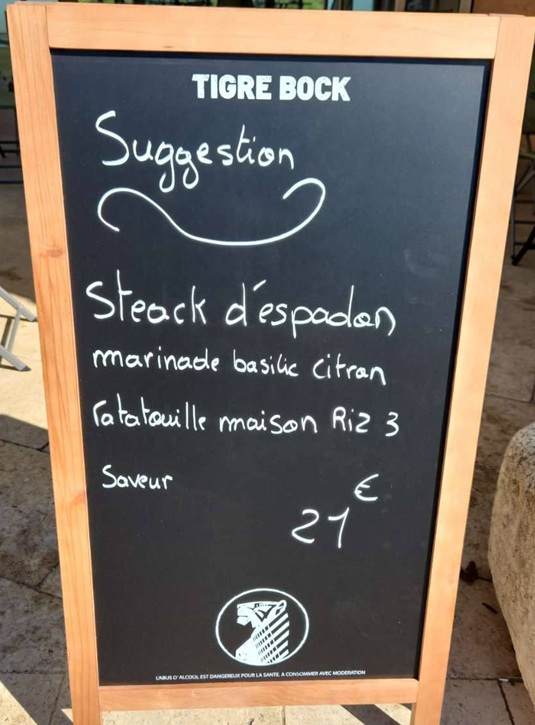 TIGRE BOCK
Suggestion
Steack d'éspadon
marinade basilic citron
ratatouille maison Riz 3
Saveur
€
21
L'ABUS D'ALCOOL EST DANGEREUX POUR LA SANTE. A CONSOMMER AVEC MODERATION